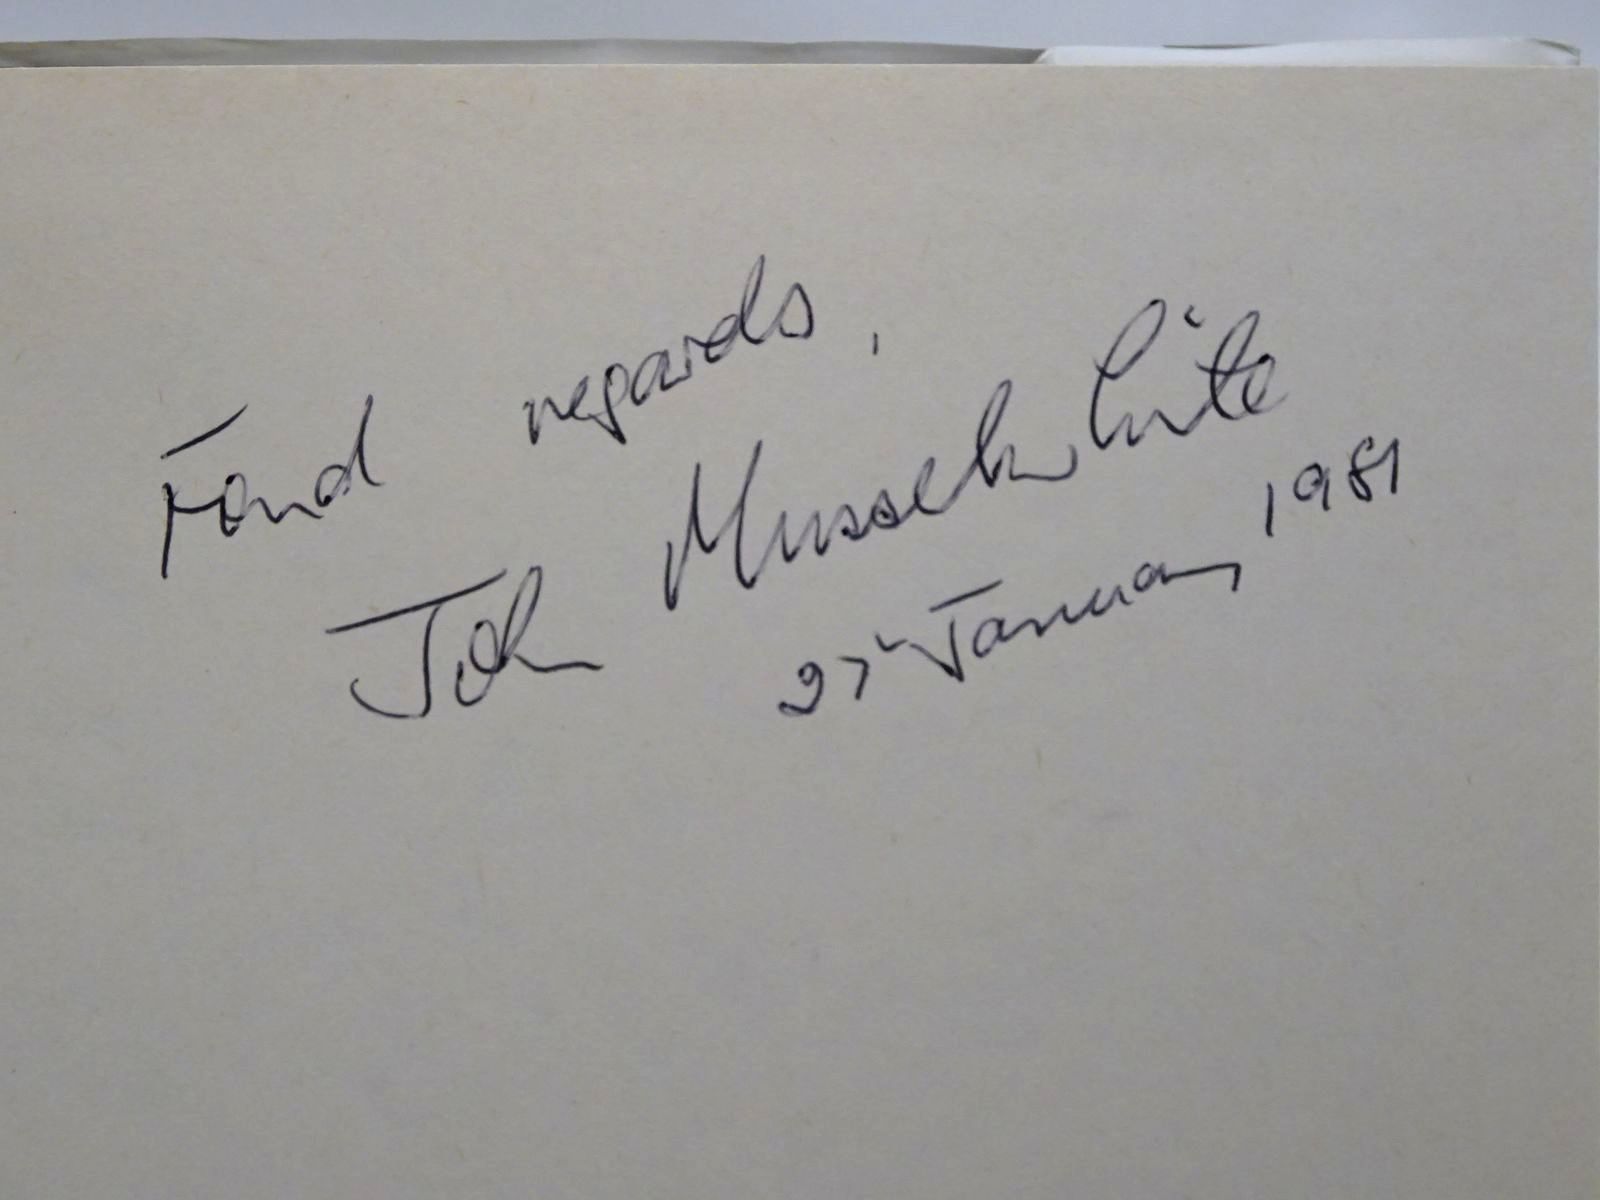 Fond regards,
John Musselwhite
27 January 1981